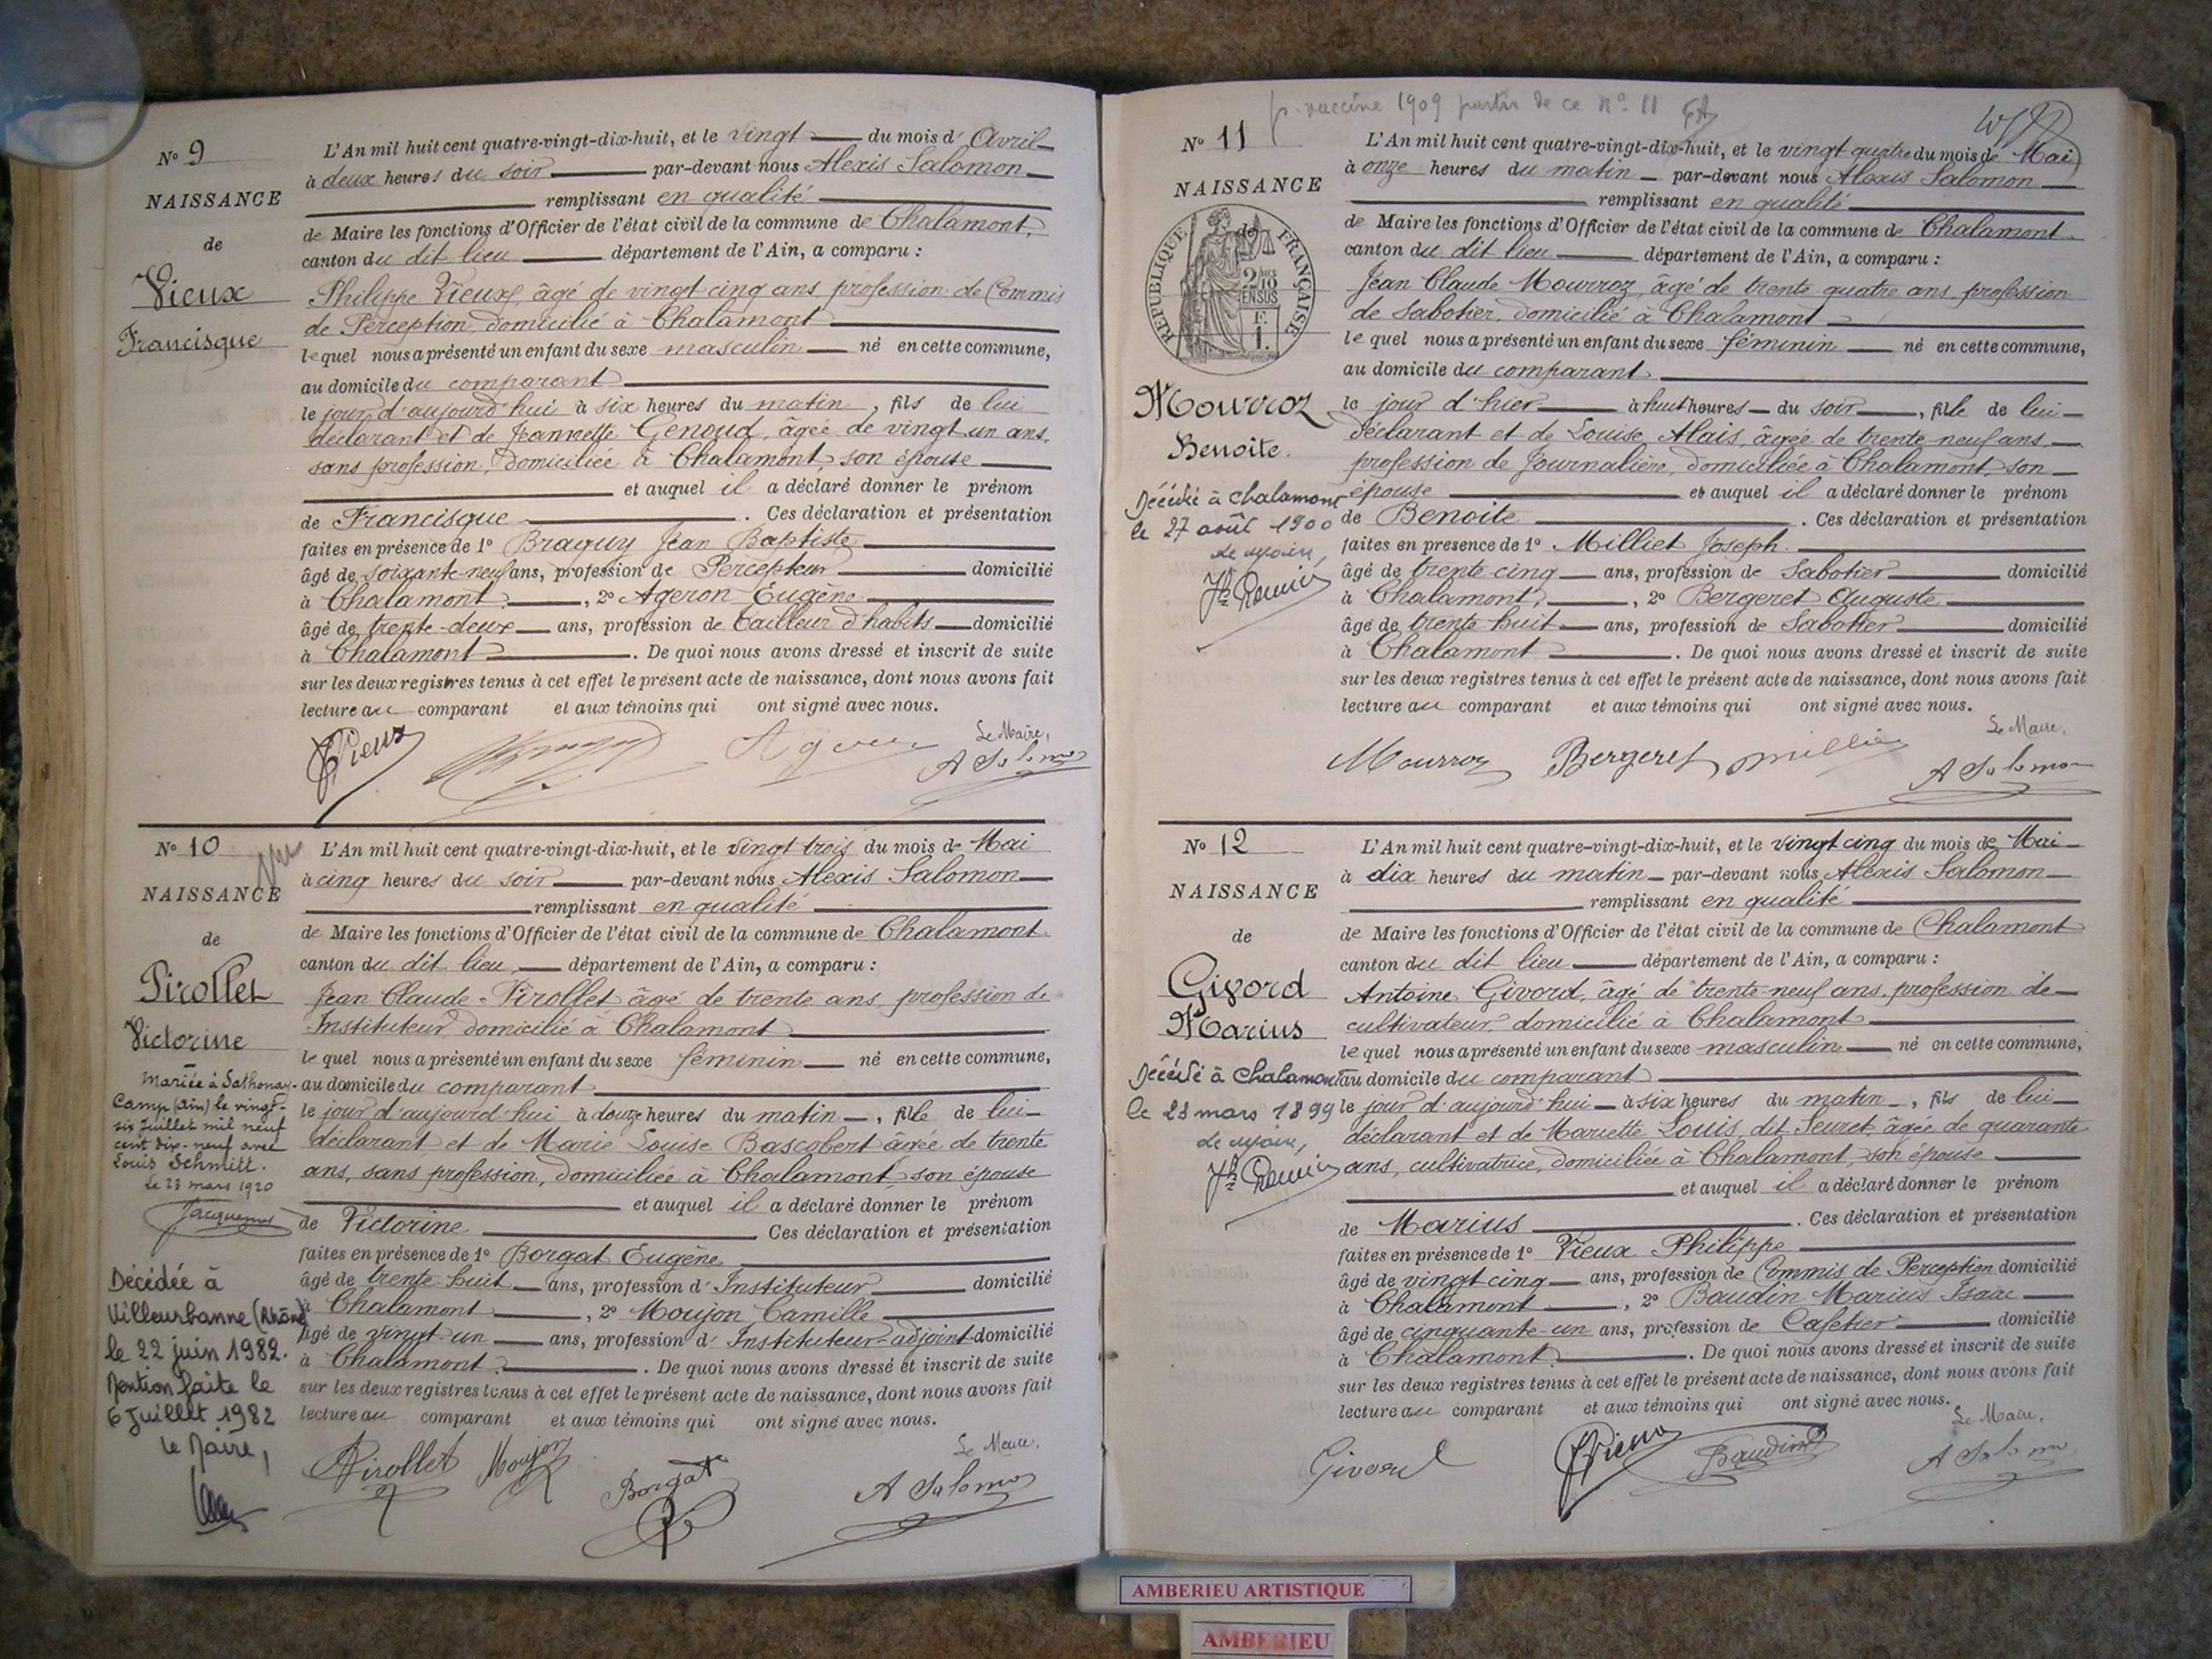 N° 9
NAISSANCE
de
Vieux
Francisque
L'An mil huit cent quatre-vingt-dix-huit, et le vingt du mois d'Avril
à deux heures du soir par-devant nous Alexis Salomon
remplissant en qualité
de Maire les fonctions d'Officier de l'état civil de la commune de Chalamont,
canton du dit lieu département de l'Ain, a comparu :
Philippe Vieux, âgé de vingt cinq ans profession de Commis
de Perception, domicilié à Chalamont
lequel nous a présenté un enfant du sexe masculin né en cette commune,
au domicile du comparant
le jour d'aujourd'hui à six heures du matin, fils de lui
déclarant et de Jeannette Genoud, âgée de vingt un ans,
sans profession, domiciliée à Chalamont, son épouse
et auquel il a déclaré donner le prénom
de Francisque. Ces déclaration et présentation
faites en présence de 1° Braguy Jean Baptiste
âgé de soixante-neuf ans, profession de Percepteur domicilié
à Chalamont, 2° Ageron Eugène
âgé de trente-deux ans, profession de Tailleur d'habits domicilié
à Chalamont. De quoi nous avons dressé et inscrit de suite
sur les deux registres tenus à cet effet le présent acte de naissance, dont nous avons fait
lecture au comparant et aux témoins qui ont signé avec nous.
Le Maire,
Vieux Ageron A Salomon
N° 10
NAISSANCE
de
Pirollet
Victorine
Mariée à Sathonay-
Camp (Ain) le vingt-
six Juillet mil neuf
cent dix-neuf avec
Louis Schmitt.
Le 23 mars 1920
Jacquemet
Décédée à
Villeurbanne (Rhône)
le 22 juin 1982.
Mention faite le
6 Juillet 1982
Le Maire,
L'An mil huit cent quatre-vingt-dix-huit, et le vingt trois du mois de Mai
à cinq heures du soir par-devant nous Alexis Salomon
remplissant en qualité
de Maire les fonctions d'Officier de l'état civil de la commune de Chalamont
canton du dit lieu, département de l'Ain, a comparu :
Jean Claude Pirollet âgé de trente ans, profession de
Instituteur, domicilié à Chalamont
lequel nous a présenté un enfant du sexe féminin né en cette commune,
au domicile du comparant
le jour d'aujourd'hui à douze heures du matin, fille de lui
déclarant et de Marie Louise Bascobert âgée de trente
ans, sans profession, domiciliée à Chalamont, son épouse
et auquel il a déclaré donner le prénom
de Victorine Ces déclaration et présentation
faites en présence de 1° Borgat Eugène
âgé de trente-huit ans, profession d'Instituteur domicilié
à Chalamont, 2° Moujon Camille
âgé de vingt un ans, profession d'Instituteur-adjoint domicilié
à Chalamont. De quoi nous avons dressé et inscrit de suite
sur les deux registres tenus à cet effet le présent acte de naissance, dont nous avons fait
lecture au comparant et aux témoins qui ont signé avec nous.
Le Maire,
Pirollet Moujon Borgat A Salomon
p. vaccine 1909 partir de ce N° 11
N° 11
NAISSANCE
de
RÉPUBLIQUE FRANÇAISE
2/10 EN SUS
Mourroz
Benoite.
Décédée à Chalamont
le 27 août 1900
Le Maire,
L'An mil huit cent quatre-vingt-dix-huit, et le vingt quatre du mois de Mai
à onze heures du matin par-devant nous Alexis Salomon
remplissant en qualité
de Maire les fonctions d'Officier de l'état civil de la commune de Chalamont
canton du dit lieu département de l'Ain, a comparu :
Jean Claude Mourroz, âgé de trente quatre ans, profession
de Sabotier, domicilié à Chalamont
lequel nous a présenté un enfant du sexe féminin né en cette commune,
au domicile du comparant
le jour d'hier à huit heures du soir, fille de lui
déclarant et de Louise Alais, âgée de trente-neuf ans
profession de Journalière, domiciliée à Chalamont, son
épouse et auquel il a déclaré donner le prénom
de Benoite. Ces déclaration et présentation
faites en présence de 1° Milliet Joseph
âgé de trente cinq ans, profession de Sabotier domicilié
à Chalamont, 2° Bergeret Auguste
âgé de trente huit ans, profession de Sabotier domicilié
à Chalamont. De quoi nous avons dressé et inscrit de suite
sur les deux registres tenus à cet effet le présent acte de naissance, dont nous avons fait
lecture au comparant et aux témoins qui ont signé avec nous.
Le Maire,
Mourroz Bergeret Milliet A Salomon
N° 12
NAISSANCE
de
Givord
Marius
Décédé à Chalamont
le 23 mars 1899
Le Maire,
L'An mil huit cent quatre-vingt-dix-huit, et le vingt cinq du mois de Mai
à dix heures du matin par-devant nous Alexis Salomon
remplissant en qualité
de Maire les fonctions d'Officier de l'état civil de la commune de Chalamont
canton du dit lieu département de l'Ain, a comparu :
Antoine Givord, âgé de trente-neuf ans, profession de
cultivateur, domicilié à Chalamont
lequel nous a présenté un enfant du sexe masculin né en cette commune,
au domicile du comparant
le jour d'aujourd'hui à six heures du matin, fils de lui
déclarant et de Mariette Louis dit Seuret, âgée de quarante
ans, cultivatrice, domiciliée à Chalamont, son épouse
et auquel il a déclaré donner le prénom
de Marius. Ces déclaration et présentation
faites en présence de 1° Vieux Philippe
âgé de vingt cinq ans, profession de Commis de Perception domicilié
à Chalamont, 2° Baudin Marius Isaac
âgé de cinquante-un ans, profession de Cafetier domicilié
à Chalamont. De quoi nous avons dressé et inscrit de suite
sur les deux registres tenus à cet effet le présent acte de naissance, dont nous avons fait
lecture au comparant et aux témoins qui ont signé avec nous.
Le Maire,
Givord Vieux Baudin A Salomon
AMBERIEU ARTISTIQUE
AMBERIEU